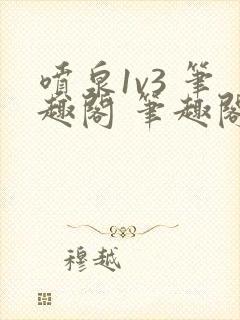 噴泉1v3 筆
趣閣 筆趣閣
穆越